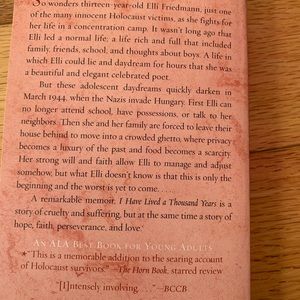 So wonders thirteen-year-old Elli Friedmann, just one
of the many innocent Holocaust victims, as she fights for
her life in a concentration camp. It wasn't long ago that
Elli led a normal life; a life rich and full that included
family, friends, school, and thoughts about boys. A life in
which Elli could lie and daydream for hours that she was
a beautiful and elegant celebrated poet.
But these adolescent daydreams quickly darken in
March 1944, when the Nazis invade Hungary. First Elli can
no longer attend school, have possessions, or talk to her
neighbors. Then she and her family are forced to leave their
house behind to move into a crowded ghetto, where privacy
becomes a luxury of the past and food becomes a scarcity.
Her strong will and faith allow Elli to manage and adjust
somehow, but what Elli doesn't know is that this is only the
beginning and the worst is yet to come. . . .
A remarkable memoir, I Have Lived a Thousand Years is a
story of cruelty and suffering, but at the same time a story of
hope, faith, perseverance, and love.
AN ALA BEST BOOK FOR YOUNG ADULTS
★ "This is a memorable addition to the searing account
of Holocaust survivors." —The Horn Book, starred review
"[I]ntensely involving. . . ." —BCCB